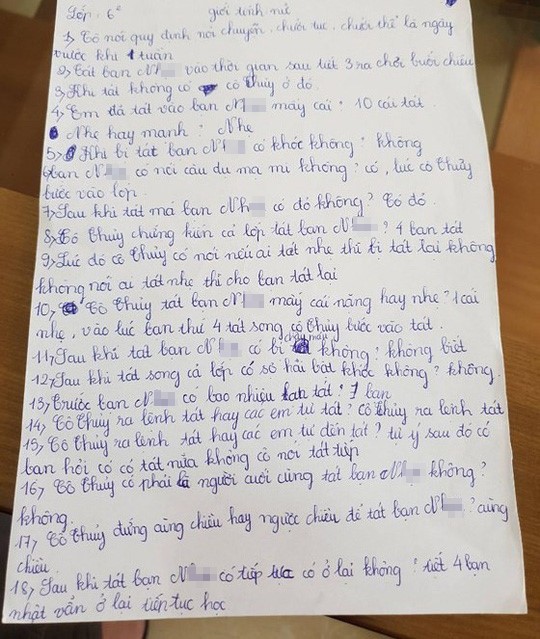 Lớp: 6² giới tính nữ
1, Cô nói quy định nói chuyện, chửi tục, chửi thề là ngày
trước khi 1 tuần
2, Tát bạn Nh vào thời gian sau tiết 3 ra chơi buổi chiều
3, Khi tát không có cô Thủy ở đó.
4, Em đã tát vào bạn N mấy cái? 10 cái tát
Nhẹ hay mạnh? Nhẹ
5, Khi bị tát bạn N có khóc không? không
6 bạn N có nói câu du ma mi không? có, lúc cô Thủy
bước vào lớp
7, Sau khi tát má bạn Nh có đỏ không? Có đỏ.
8, Cô Thủy chứng kiến cả lớp tát bạn N? 4 bạn tát
9, Lúc đó cô Thủy có nói nếu ai tát nhẹ thì bị tát lại không
không nói ai tát nhẹ thì cho bạn tát lại
10, Cô Thủy tát bạn N mấy cái nặng hay nhẹ? 1 cái
nhẹ, vào lúc bạn thứ 4 tát song cô Thủy bước vào tát.
11, Sau khi tát bạn N có bị chảy máu không? không biết
12, Sau khi tát song cả lớp có sợ hãi bật khóc không? không.
13, Trước bạn N có bao nhiêu bạn tát? 1 bạn
14, Cô Thủy ra lệnh tát hay các em tự tát? cô Thủy ra lệnh tát
15, Cô Thủy ra lệnh tát hay các em tự đến tát? tự ý sau đó có
bạn hỏi cô có tát nữa không cô nói tát tiếp
16, Cô Thủy có phải là người cuối cùng tát bạn N không?
không.
17, Cô Thủy đứng cùng chiều hay ngược chiều để tát bạn N? cùng
chiều
18, Sau khi tát bạn N có tiếp tục có ở lại không? tiết 4 bạn
nhật vẫn ở lại tiếp tục học